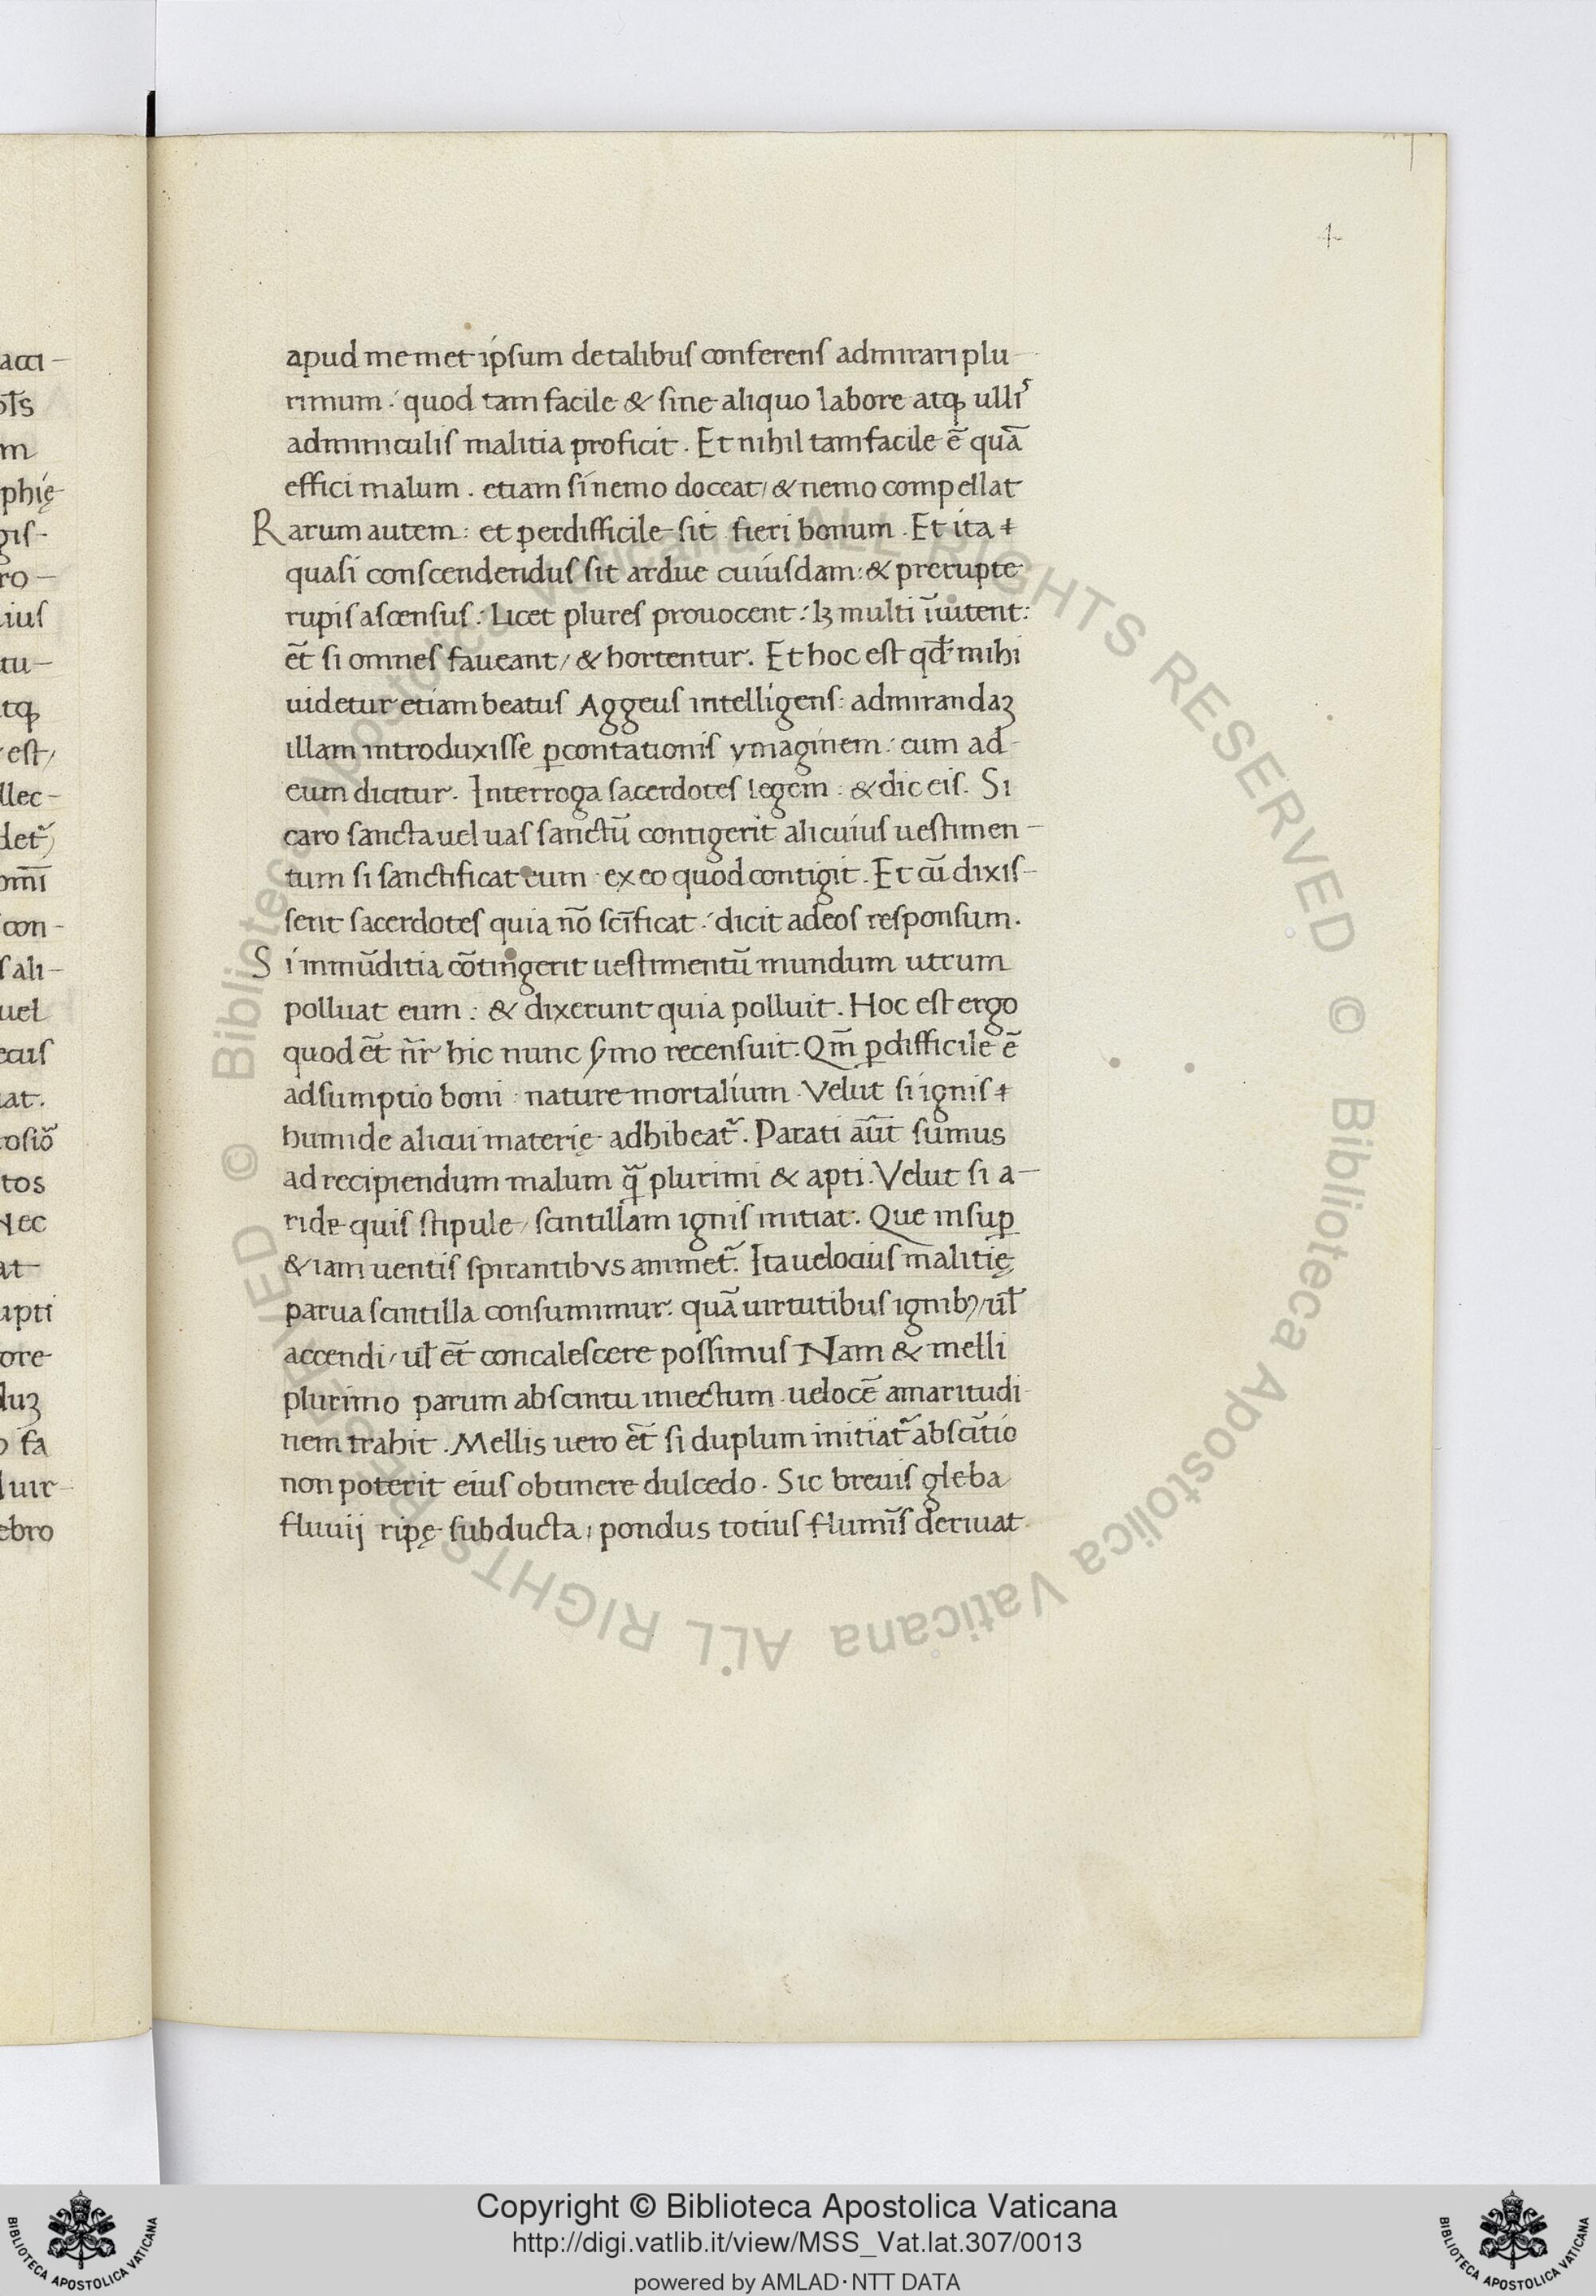 4
apud me met ipsum de talibus conferens admirari plu-
rimum: quod tam facile & sine aliquo labore atqꝫ ullis
adminiculis malitia proficit. Et nihil tam facile ē quā
effici malum. etiam si nemo doceat / & nemo compellat
Rarum autem: et perdifficile sit fieri bonum. Et ita
quasi conscendendus sit ardue cuiusdam: & prerupte
rupis ascensus: Licet plures prouocent: lꝫ multi īuitent:
et̄ si omnes faueant / & hortentur. Et hoc est qd̄ mihi
uidetur etiam beatus Aggeus intelligens: admirandaꝫ
illam introduxisse ꝑcontationis ymaginem: cum ad
eum dicitur. Interroga sacerdotes legem: & dic eis. Si
caro sancta uel uas sanctū contigerit alicuius uestimen-
tum si sanctificat eum ex eo quod contigit. Et cū dixis-
sent sacerdotes quia nō scīficat: dicit ad eos responsum.
Si inmūditia cōtingerit uestimentū mundum utrum
polluat eum: & dixerunt quia polluit. Hoc est ergo
quod et̄ nr̄ hic nunc ẜmo recensuit. Qm̄ ꝑdifficile ē
adsumptio boni nature mortalium. Velut si ignis
humide alicui materię adhibeat᷑. Parati aūt sumus
ad recipiendum malum q̄ plurimi & apti. Velut si a-
ride quis stipule / scintillam ignis initiat. Que insuꝑ
& iam uentis spirantibus animet᷑. Ita uelocius malitię
parua scintilla consumimur. quā uirtutibus ignibꝫ / ul̄
accendi / ul̄ et̄ concalescere possimus Nam & melli
plurimo parum abscintu iniectum uelocē amaritudi-
nem trahit. Mellis uero et̄ si duplum initiat᷑ abscītio
non poterit eius obtinere dulcedo. Sic breuis gleba
fluuij ripę subducta / pondus totius flumīs deriuat
Copyright © Biblioteca Apostolica Vaticana
http://digi.vatlib.it/view/MSS_Vat.lat.307/0013
powered by AMLAD·NTT DATA